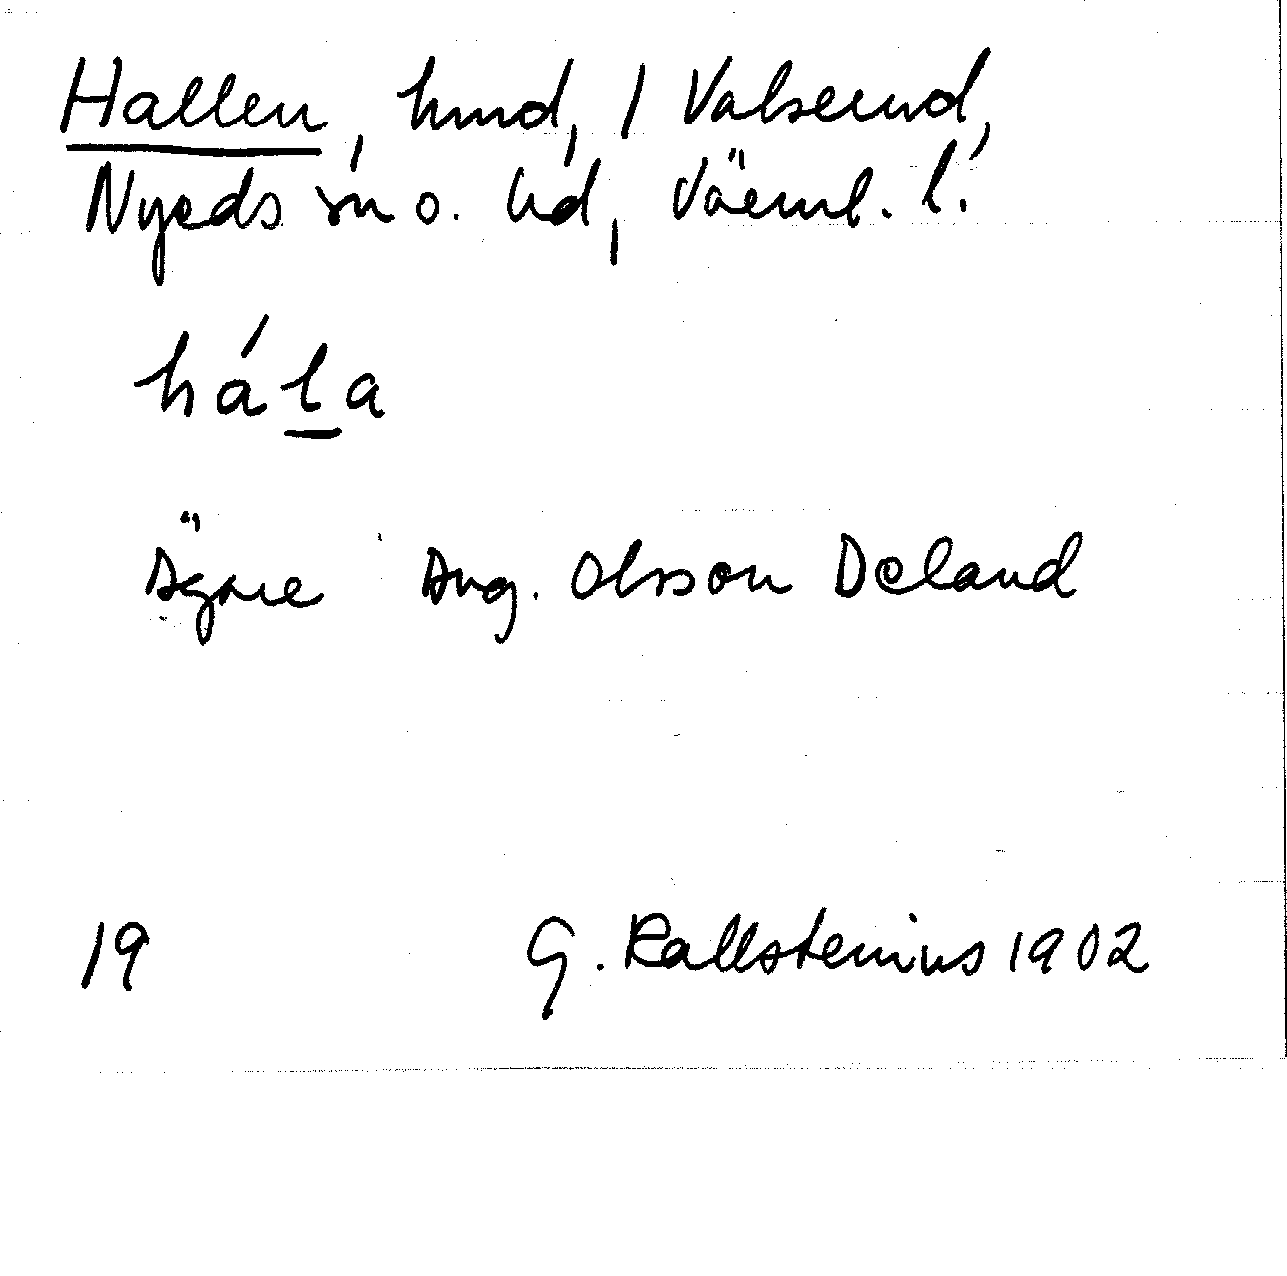 Hallen, hmd, 1 Valserud,
Nyeds sn o. hd, Värml. l.
hála
Ägare Aug. Olsson Deland
19 G. Kallstenius 1902